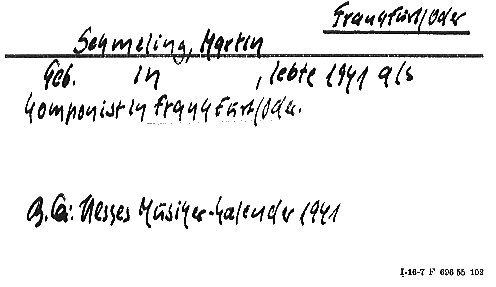 Frankfurt/Oder
Schmeling, Martin
Geb. in , lebte 1941 als
Komponist in Frankfurt/Oder.
Hesses Musiker-Kalender 1941
I-16-7 F 696 55 102